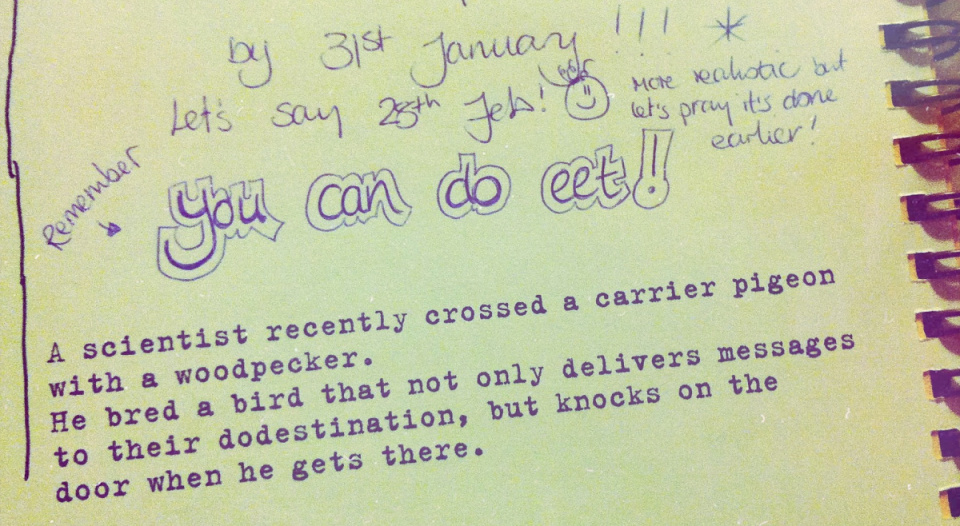 by 31st January !!! *
Let's say 28th Feb!
More realistic but
let's pray it's done
earlier!
Remember
you can do eet!
A scientist recently crossed a carrier pigeon
with a woodpecker.
He bred a bird that not only delivers messages
to their dodestination, but knocks on the
door when he gets there.